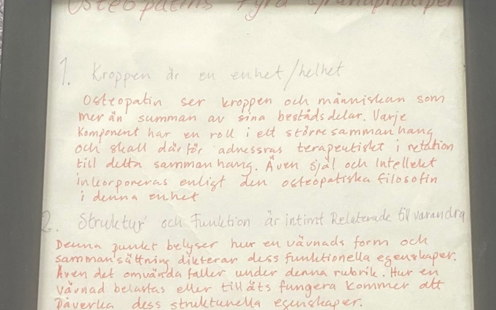 Osteopatins Fyra Grundprinciper
1. Kroppen är en enhet/helhet
Osteopatin ser kroppen och människan som
mer än summan av sina beståndsdelar. Varje
komponent har en roll i ett större sammanhang
och skall därför adressras terapeutiskt i relation
till detta sammanhang. Även själ och Intellekt
inkorporeras enligt den osteopatiska filosofin
i denna enhet
2. Struktur och Funktion är intimt Relaterade till varandra
Denna punkt belyser hur en vävnads form och
sammansättning dikterar dess funktionella egenskaper.
Även det omvända faller under denna rubrik. Hur en
vävnad belastas eller tillåts fungera kommer att
påverka dess strukturella egenskaper.